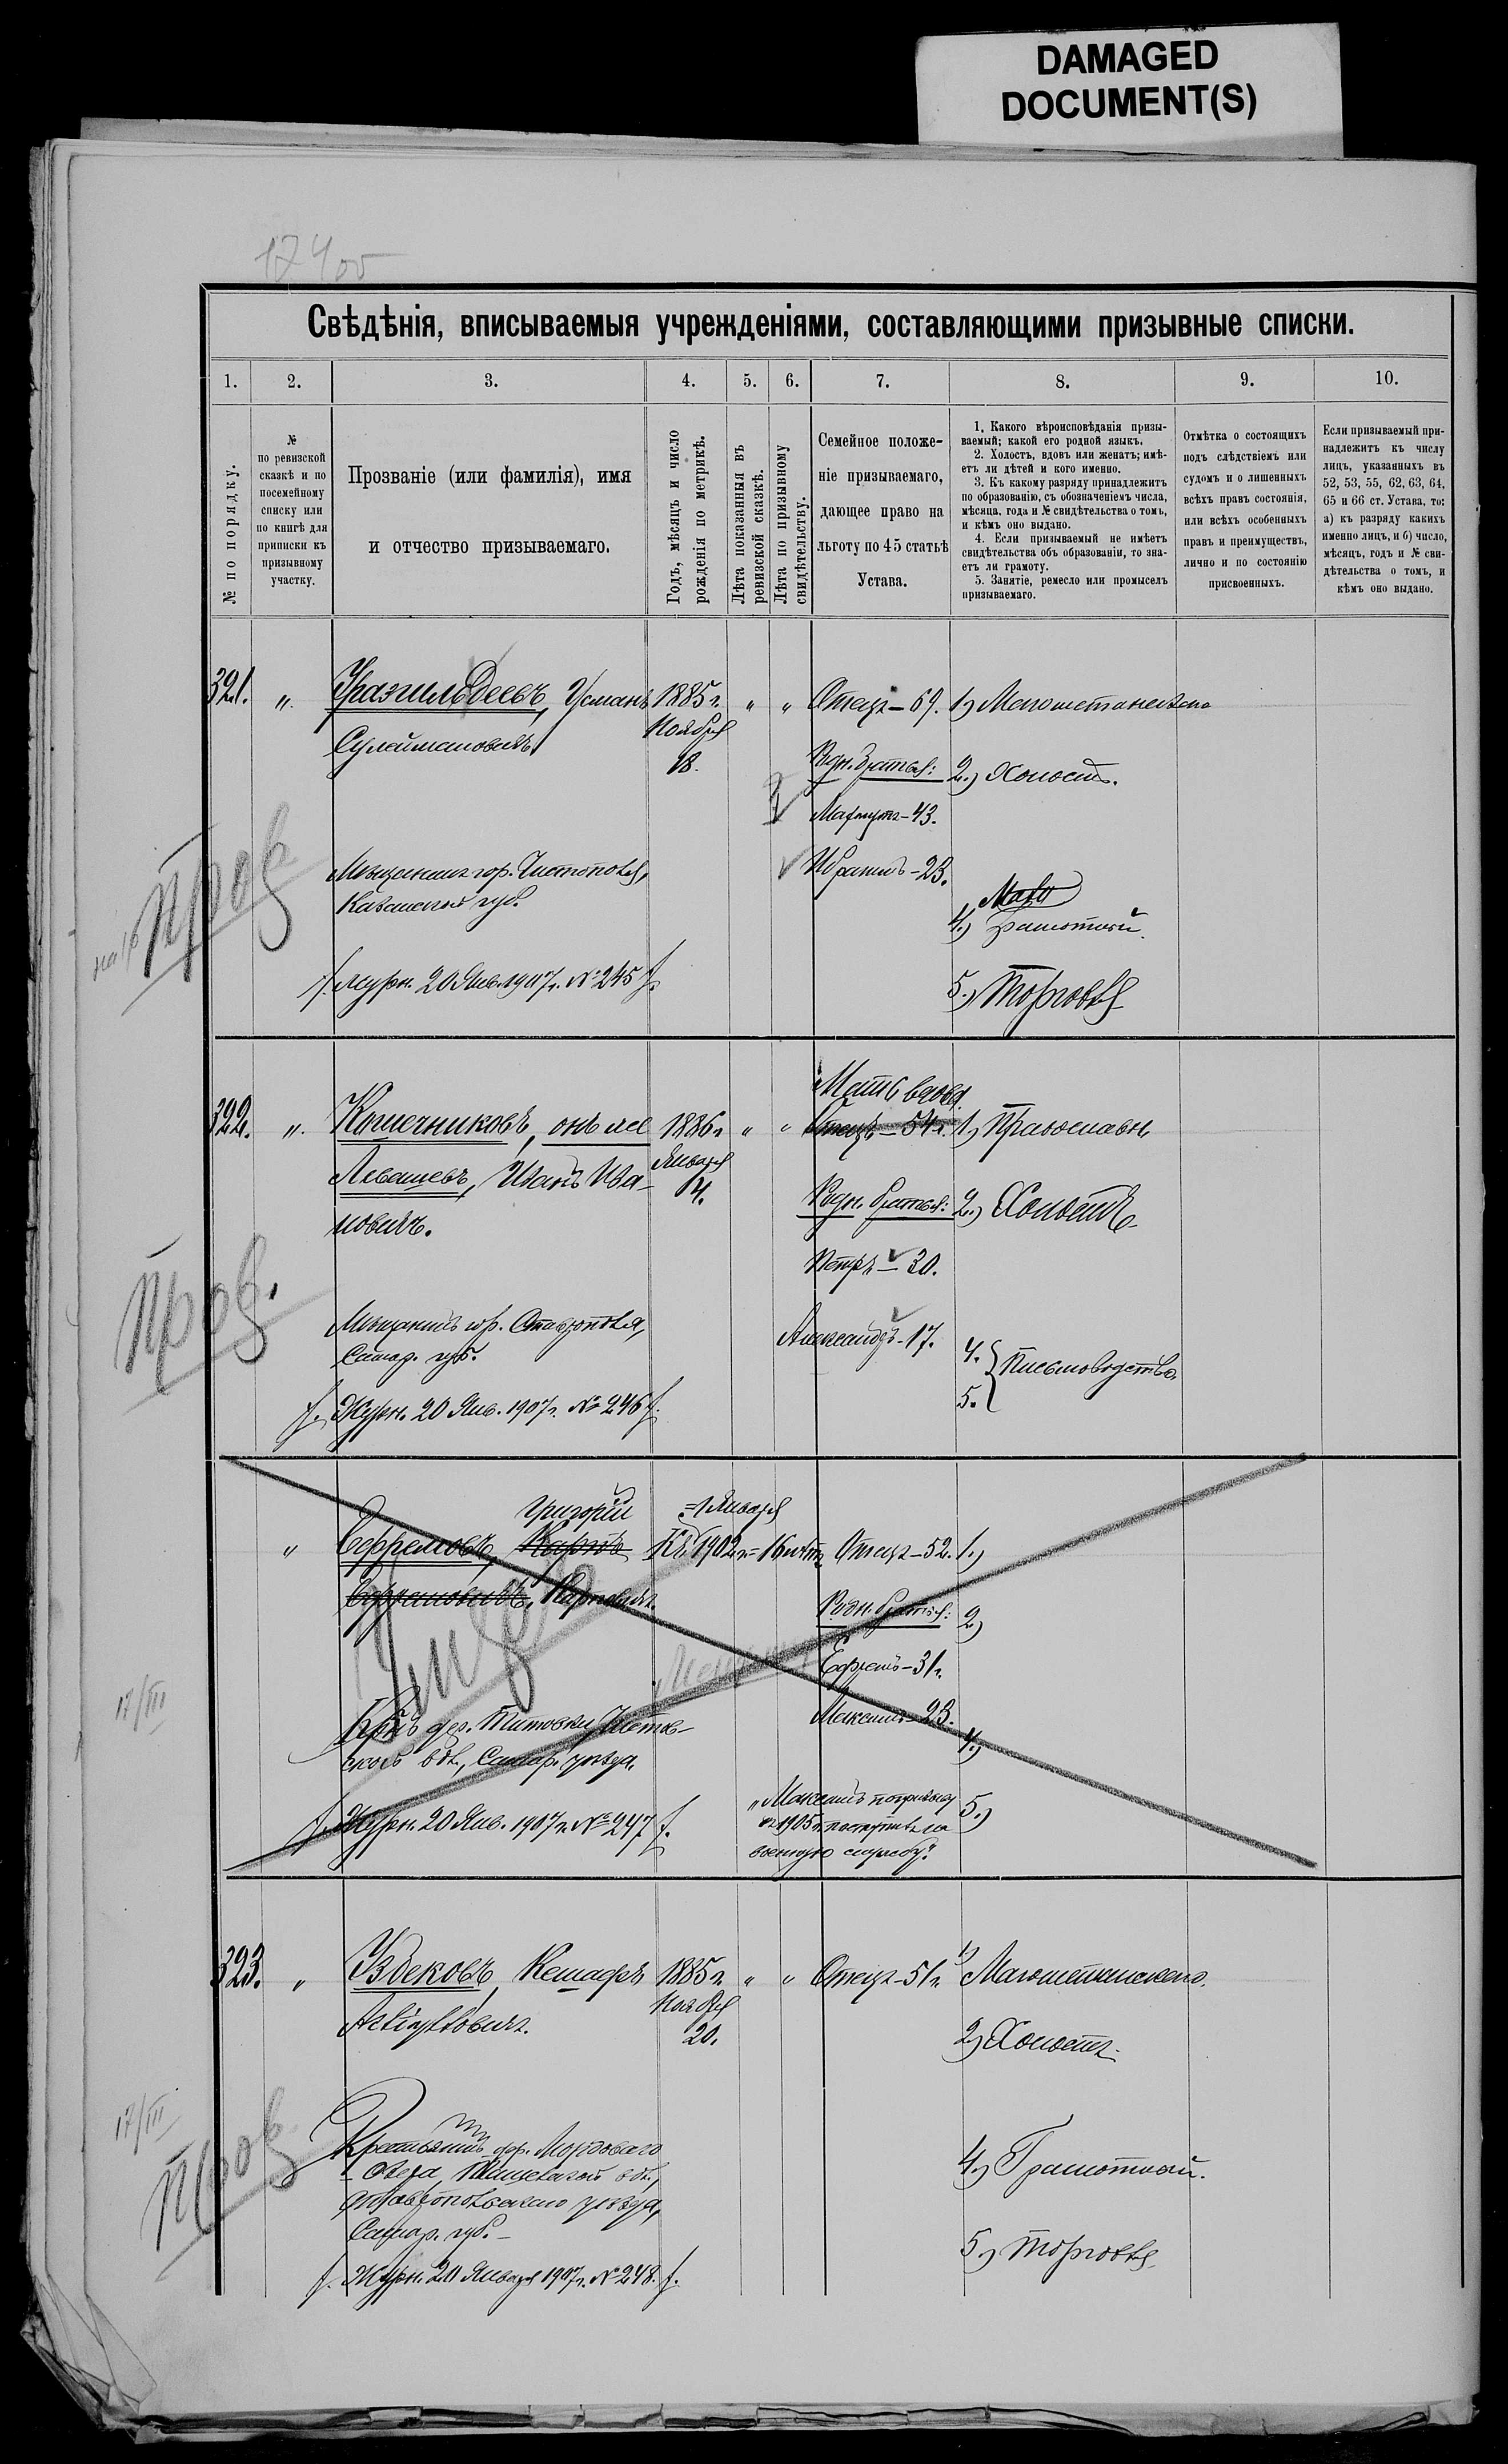 DAMAGED
DOCUMENT(S)
Свѣдѣнія, вписываемыя учрежденіями, составляющими призывные списки.
1. 2. 3. 4. 5. 6. 7. 8. 9. 10.
№ по порядку.
№
по ревизской
сказкѣ и по
посемейному
списку или
по книгѣ для
приписки къ
призывному
участку.
Прозваніе (или фамилія), имя
и отчество призываемаго.
Годъ, мѣсяцъ и число
рожденія по метрикѣ.
Лѣта показанныя въ
ревизской сказкѣ.
Лѣта по призывному
свидѣтельству.
Семейное положе-
ніе призываемаго,
дающее право на
льготу по 45 статьѣ
Устава.
1. Какого вѣроисповѣданія призы-
ваемый; какой его родной языкъ.
2. Холостъ, вдовъ или женатъ; имѣ-
етъ ли дѣтей и кого именно.
3. Къ какому разряду принадлежитъ
по образованію, съ обозначеніемъ числа,
мѣсяца, года и № свидѣтельства о томъ,
и кѣмъ оно выдано.
4. Если призываемый не имѣетъ
свидѣтельства объ образованіи, то зна-
етъ ли грамоту.
5. Занятіе, ремесло или промыселъ
призываемаго.
Отмѣтка о состоящихъ
подъ слѣдствіемъ или
судомъ и о лишенныхъ
всѣхъ правъ состоянія,
или всѣхъ особенныхъ
правъ и преимуществъ,
лично и по состоянію
присвоенныхъ.
Если призываемый при-
надлежитъ къ числу
лицъ, указанныхъ въ
52, 53, 55, 62, 63, 64,
65 и 66 ст. Устава, то:
а) къ разряду какихъ
именно лицъ, и б) число,
мѣсяцъ, годъ и № сви-
дѣтельства о томъ, и
кѣмъ оно выдано.
321. „ Уразгильдеевъ, Усманъ 1885 г. „ „ Отецъ – 69. 1)
Сулеймановичъ Ноября
18.
Родн. братья: 2.) Холостъ.
Махмутъ – 43.
Ибрагимъ – 23.
Мѣщанинъ гор. Чистополя,
Казанской губ.
Мало
4.) грамотный.
Журн. 20 Янв. 1907 г. № 245
5.) Торговля
Пров
322. „ Колесниковъ, онъ же 1886 г. „ „
Мать вдова.
Отецъ – 54 г. 1) Православн
Левашевъ, Иванъ Ива- Января
14.
новичъ.
Родн. братья: 2.) Холостъ
Петръ – 30.
Александръ – 17.
Пров.
Мѣщанинъ гор. Ставрополя,
Самар. губ.
4.
5. Письмоводство.
Журн. 20 Янв. 1907 г. № 246
„ Ефремовъ, Карпъ
Григорій
Ефремовичъ, Карповичъ
= 1 Января
Къ 1902 г. = 16 лѣтъ Отецъ – 52. 1.)
Родн. братья: 2)
Ефремъ – 31 г.
Максимъ – 23.
4.)
17/III
Крнъ дер. Титовки,
вол., Самар. уѣзда.
Журн. 20 Янв. 1907 г. № 247
„Максимъ по призыву
въ 1905 г. поступилъ на
военную службу."
5.)
323. „ Узбековъ, 1885 г. „ „ Отецъ – 51 г. 1)
Ноября
20.
2) Холостъ.
17/III
Пров
Крестьянинъ дер. Мордоваго
Озера, вол.,
Ставропольскаго уѣзда,
Самар. губ. –
4.) Грамотный.
5.) Торговля
Журн. 20 Января 1907 г. № 248.